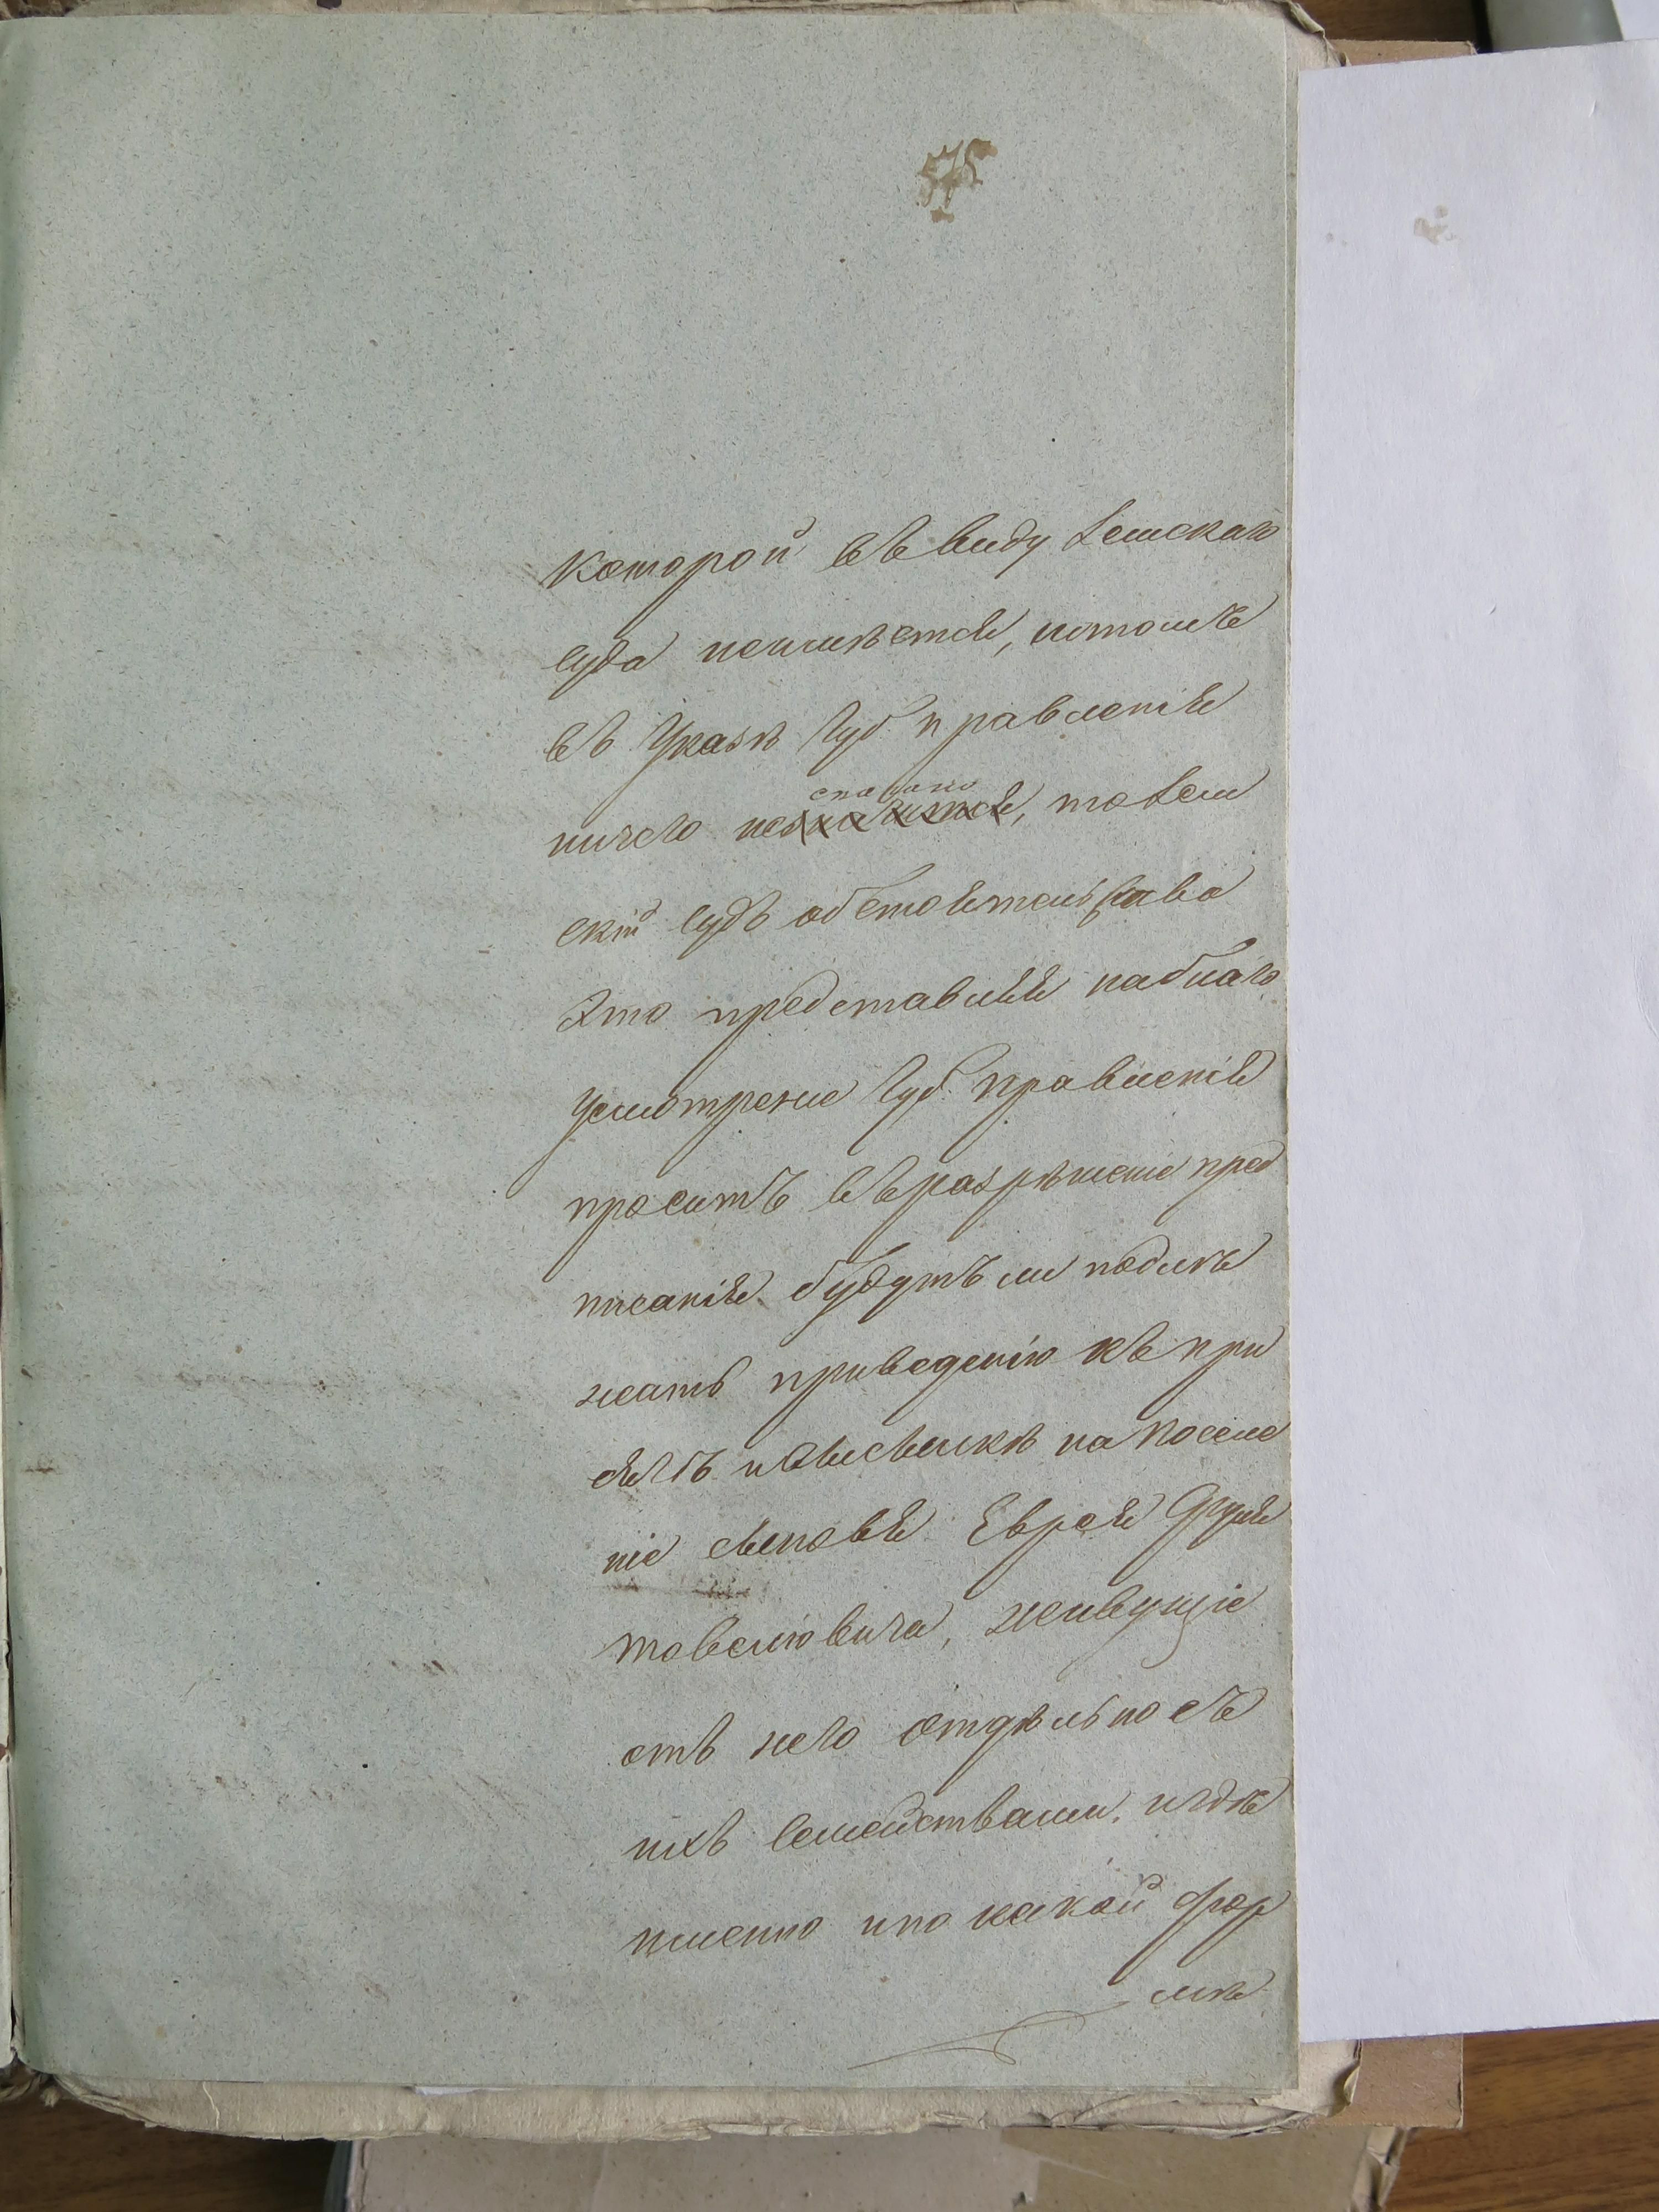 575
которой въ виду Земскаго
суда неимѣется, и отомъ
въ Указѣ Губ. правленія
ничего не сказано, то Зем
скій судъ обстоятельства
Это представляя на благо
усмотреніе Губ. правленія
проситъ въ разрѣшеніе пред
писанія будутъ ли подле
жать приведенію къ при
сягѣ и высылкѣ на поселе
ніе сыновья Еврея
Товелiовича, живущіе
отъ него отдѣльно съ
ихъ семействами. и гдѣ
именно и по какой фор
мѣ